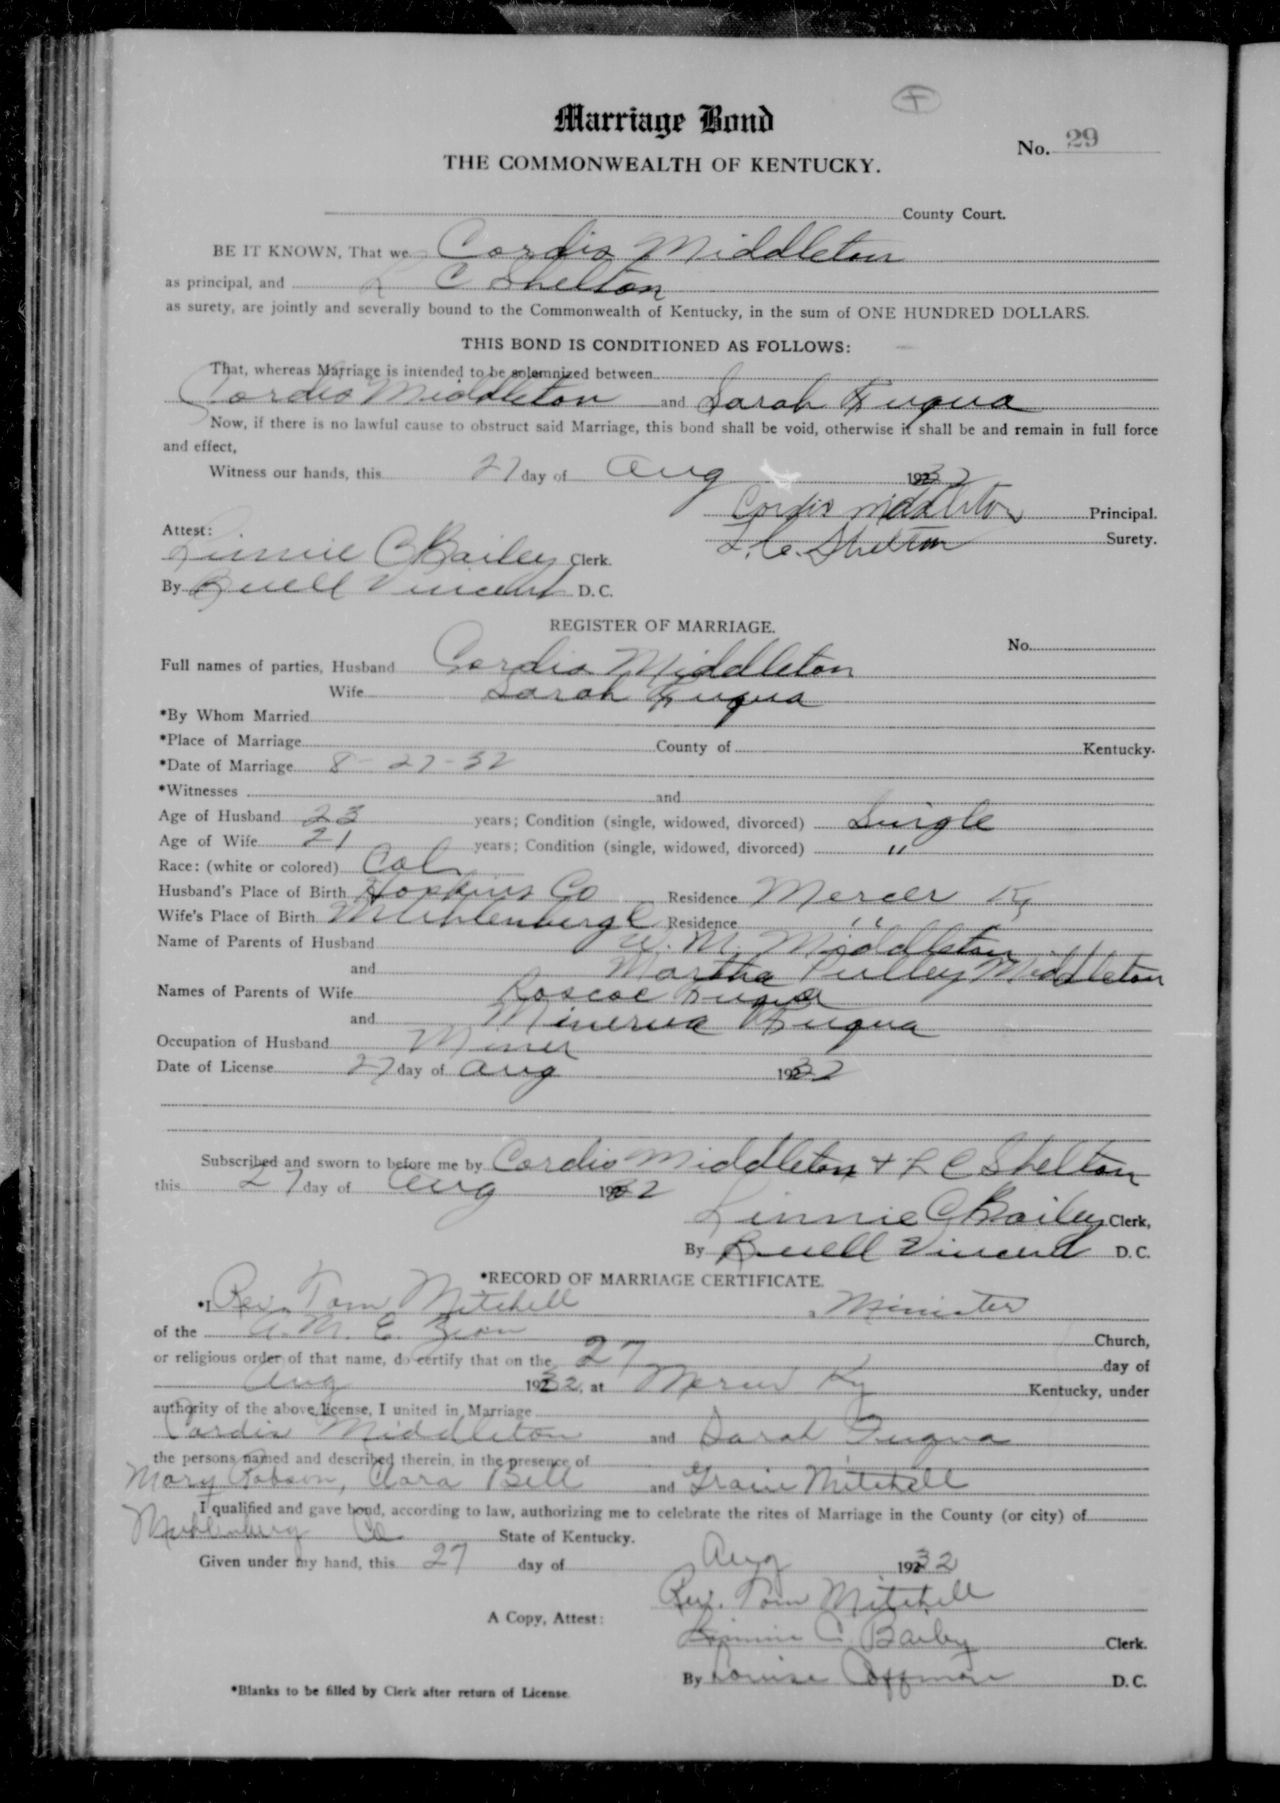 F
Marriage Bond
No. 29
THE COMMONWEALTH OF KENTUCKY.
County Court.
BE IT KNOWN, That we Cordis Middleton
as principal, and L C Shelton
as surety, are jointly and severally bound to the Commonwealth of Kentucky, in the sum of ONE HUNDRED DOLLARS.
THIS BOND IS CONDITIONED AS FOLLOWS:
That, whereas Marriage is intended to be solemnized between
Cordis Middleton and Sarah Fuqua
Now, if there is no lawful cause to obstruct said Marriage, this bond shall be void, otherwise it shall be and remain in full force
and effect,
Witness our hands, this 27 day of Aug 1932
Cordis Middleton Principal.
Attest: L. C. Shelton Surety.
Linnie C Bailey Clerk.
By Buell Vincent D. C.
REGISTER OF MARRIAGE.
No.
Full names of parties, Husband Cordis Middleton
Wife Sarah Fuqua
*By Whom Married
*Place of Marriage County of Kentucky.
*Date of Marriage 8-27-32
*Witnesses and
Age of Husband 23 years; Condition (single, widowed, divorced) Single
Age of Wife 21 years; Condition (single, widowed, divorced) "
Race: (white or colored) Col
Husband's Place of Birth Hopkins Co Residence Mercer Ky
Wife's Place of Birth Muhlenberg C Residence "
Name of Parents of Husband W. M. Middleton
and Martha Pulley Middleton
Names of Parents of Wife Roscoe Fuqua
and Minerva Fuqua
Occupation of Husband Miner
Date of License 27 day of Aug 1932
Subscribed and sworn to before me by Cordis Middleton + L C Shelton
this 27 day of Aug 1932
Linnie C Bailey Clerk,
By Buell Vincent D. C.
*RECORD OF MARRIAGE CERTIFICATE.
*I Rev. Tom Mitchell , Minister
of the A. M. E. Zion Church,
or religious order of that name, do certify that on the 27 day of
Aug 1932, at Mercer Ky Kentucky, under
authority of the above license, I united in Marriage
Cordis Middleton and Sarah Fuqua
the persons named and described therein, in the presence of
Mary Robson, Clara Bell and Gracie Mitchell
I qualified and gave bond, according to law, authorizing me to celebrate the rites of Marriage in the County (or city) of
Muhlenberg Co State of Kentucky.
Given under my hand, this 27 day of Aug 1932
Rev. Tom Mitchell
A Copy, Attest:
Linnie C. Bailey Clerk.
By Louise Coffman D. C.
*Blanks to be filled by Clerk after return of License.